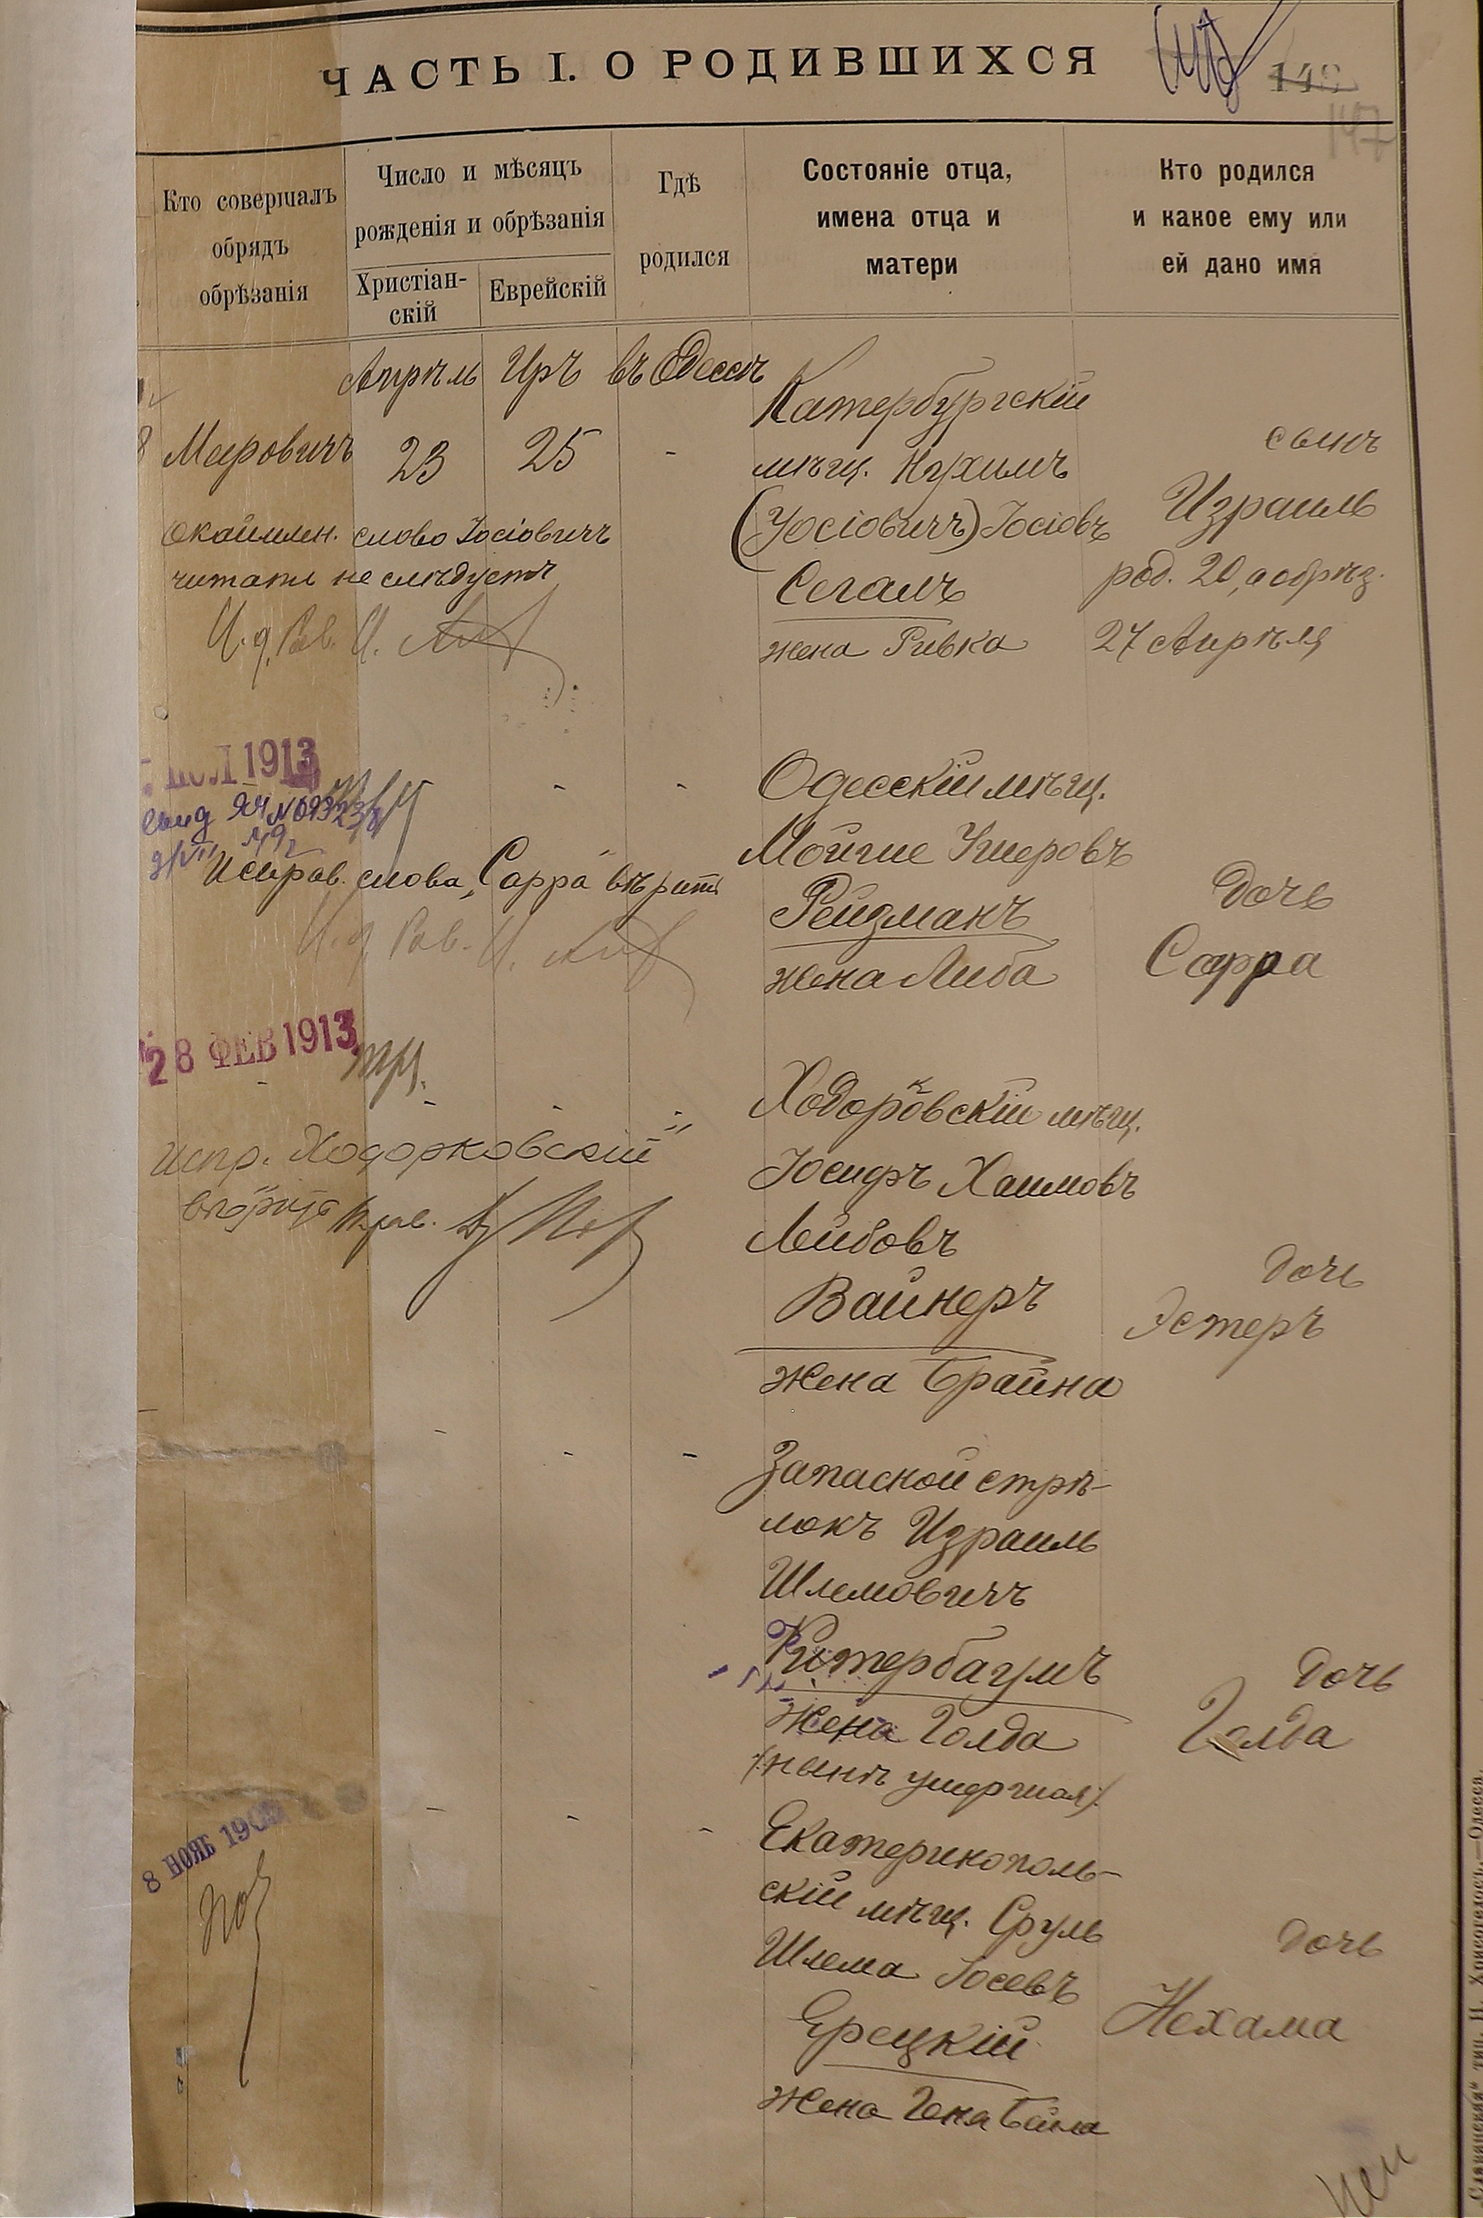 ЧАСТЬ I. О РОДИВШИХСЯ
147
Кто совершалъ
обрядъ
обрѣзанія
Число и мѣсяцъ
рожденія и обрѣзанія
Христіан-
скій
Еврейскій
Гдѣ
родился
Состояніе отца,
имена отца и
матери
Кто родился
и какое ему или
ей дано имя
Апрѣль Иръ въ Одессѣ
Маровичъ 23 25 -
Катербургскій
мѣщ. Нухимъ
(Іосіовичъ) Іосіовъ
Сегалъ
жена Ривка
сынъ
Израиль
род. 20, а обрѣз.
27 Апрѣля
Окаймлен. слово Іосіовичъ
читать не слѣдуетъ
И. д. Рав.
1913
Одесскій мѣщ.
Мойше Ушеровъ
Рейдманъ
жена Либа
дочь
Сарра
Исправ. слова "Сарра" вѣрить
И. д. Рав.
28 ФЕВ 1913
Ходорковскій мѣщ.
Іосифъ Хаимовъ
Лейбовъ
Вайнеръ
жена Брайна
дочь
Эстеръ
испр. "Ходорковскій"
вѣрить
Запасной стрѣ-
локъ Израиль
Шлемовичъ
Китербаумъ
жена Голда
(нынѣ умершая).
дочь
Голда
8 НОЯБ
Екатеринополь-
скій мѣщ. Сруль
Шлема Іосевъ
Ерецкій
жена Геня Бейла
дочь
Нехама